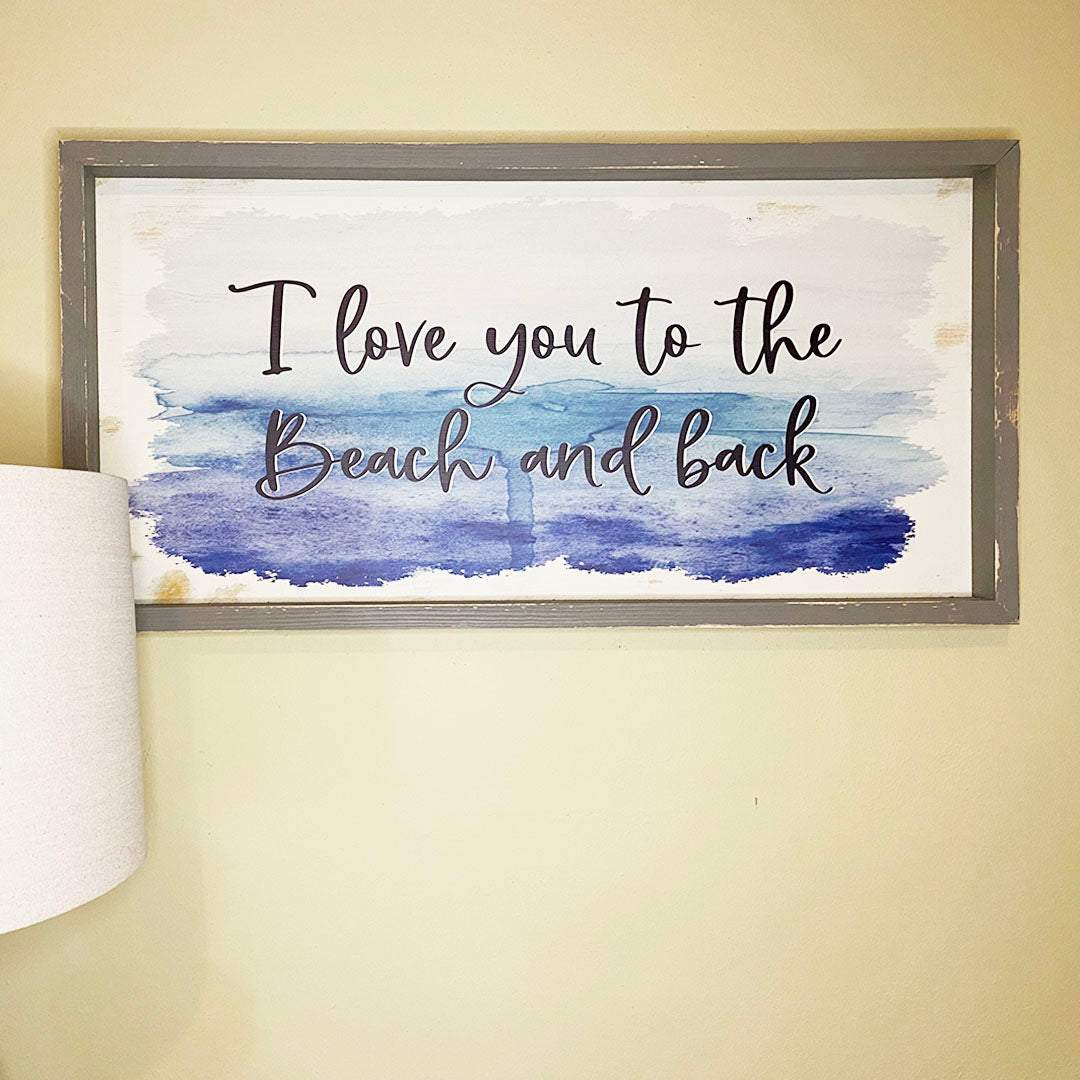 I love you to the
Beach and back